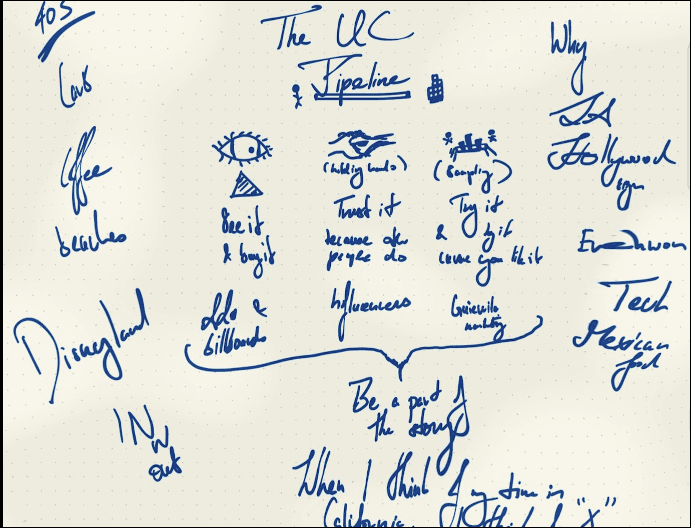 405
The UC
Pipeline
Why
Cars
LA
Hollywood
sign
Coffee
beaches
(holding hands)
(Sampling)
See it
& buy it
Trust it
because other
people do
Try it
& buy it
cause you like it
Erewhon
Tech
Mexican
food
Ads &
billboards
Influencers
Guierrilla
marketing
Disneyland
IN N
out
Be a part of
the story
When I think of my time in
California
"X"